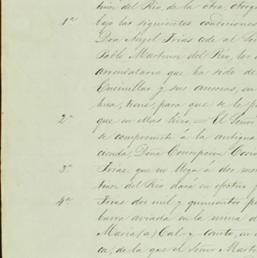 tinez del Río, de la otra, otorg
bajo las siguientes condiciones
1ª Don Angel Frias cede al Señor
Pablo Martinez del Río, los
arrendatario que ha sido de
Encinillas y sus anexas, en
hua, tiene, para que se le p
2ª que en ellas tiene. = El Señor
se compromete á la antigua
cienda, Doña Concepcion
3ª Frias, que no llega á dos mes
tinez del Río dará en efectivo y
4ª Frias dos mil y quinientos p
barra aviada en la mina d
María (a) Cal y Canto, en
ca, de la que el Señor Mart